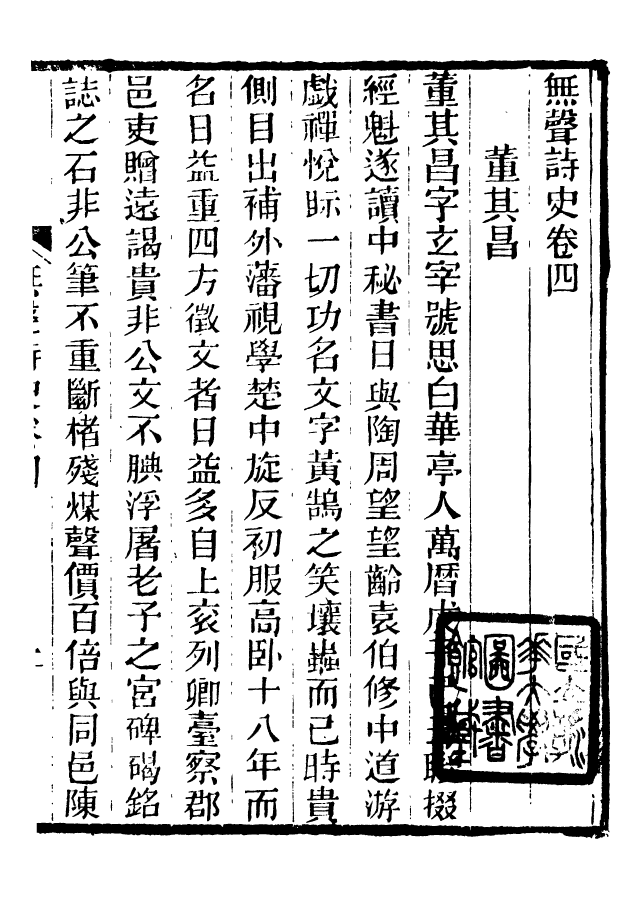 無聲詩史卷四
董其昌
董其昌字玄字號思白華亭人萬曆戊掇
經魁遂讀中秘書日與陶周望望齡袁伯修中道游
戲禪悅眎一切功名文字黃鵠之笑壤蟲而已時貴
側目出補外藩視學楚中旋反初服高臥十八年而
名日益重四方徵文者日益多自上袞列卿臺察郡
邑吏贈遠謁貴非公文不腆浮屠老子之宮碑碣銘
誌之石非公筆不重斷楮殘煤聲價百倍與同邑陳
國立清
華大學
圖書
館藏